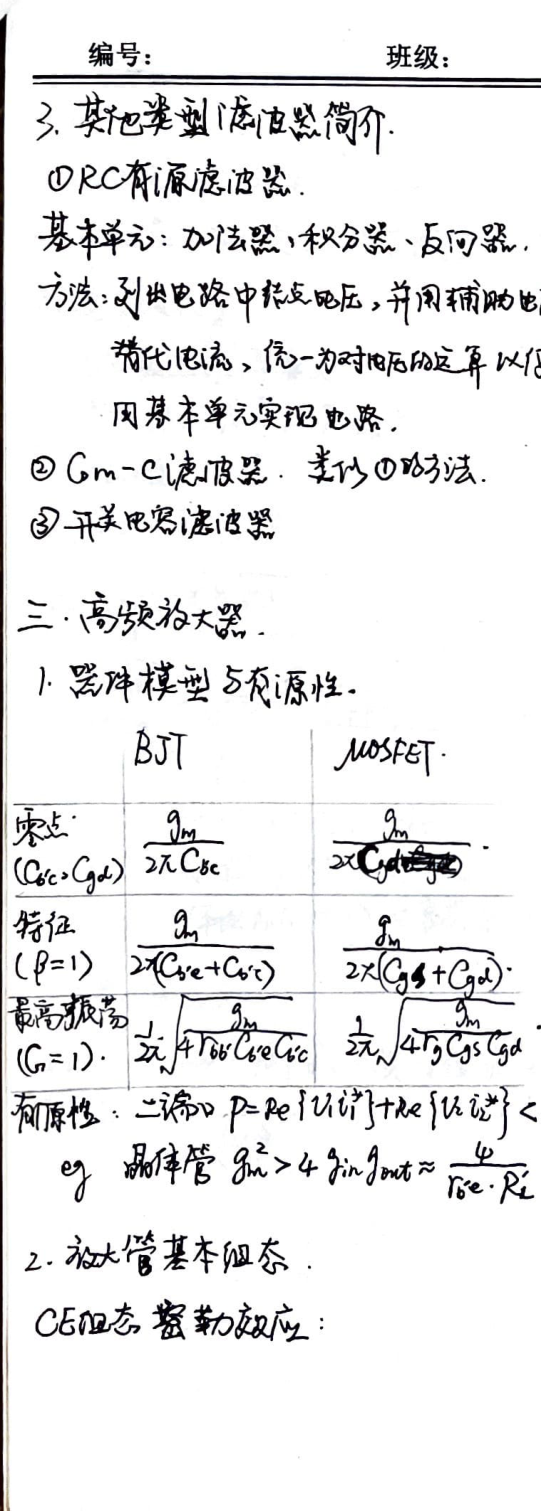 编号： 班级：
3. 其他类型滤波器简介.
①RC有源滤波器.
基本单元：加法器、积分器、反向器.
方法：列出电路中结点电压，并用辅助电
替代电流，统一为对电压的运算以
用基本单元实现电路.
② Gm-C滤波器. 类似①的方法.
③ 开关电容滤波器
三. 高频放大器.
1. 器件模型与有源性.
BJT MOSFET.
零点 (Cb'c, Cgd) gm/(2πCb'c) gm/(2πCgd).
特征 (β=1) gm/(2π(Cb'e+Cb'c)) gm/(2π(Cgs+Cgd)).
最高振荡 (G=1). 1/(2π) √(gm/(4rbb'Cb'eCb'c)) 1/(2π) √(gm/(4rgCgsCgd)).
有源性：二端口 P=Re{V₁i₁*}+Re{V₂i₂*}<
eg 晶体管 gm²>4gin gout≈4/(rb'e·RL')
2. 放大管基本组态.
CE组态 密勒效应：